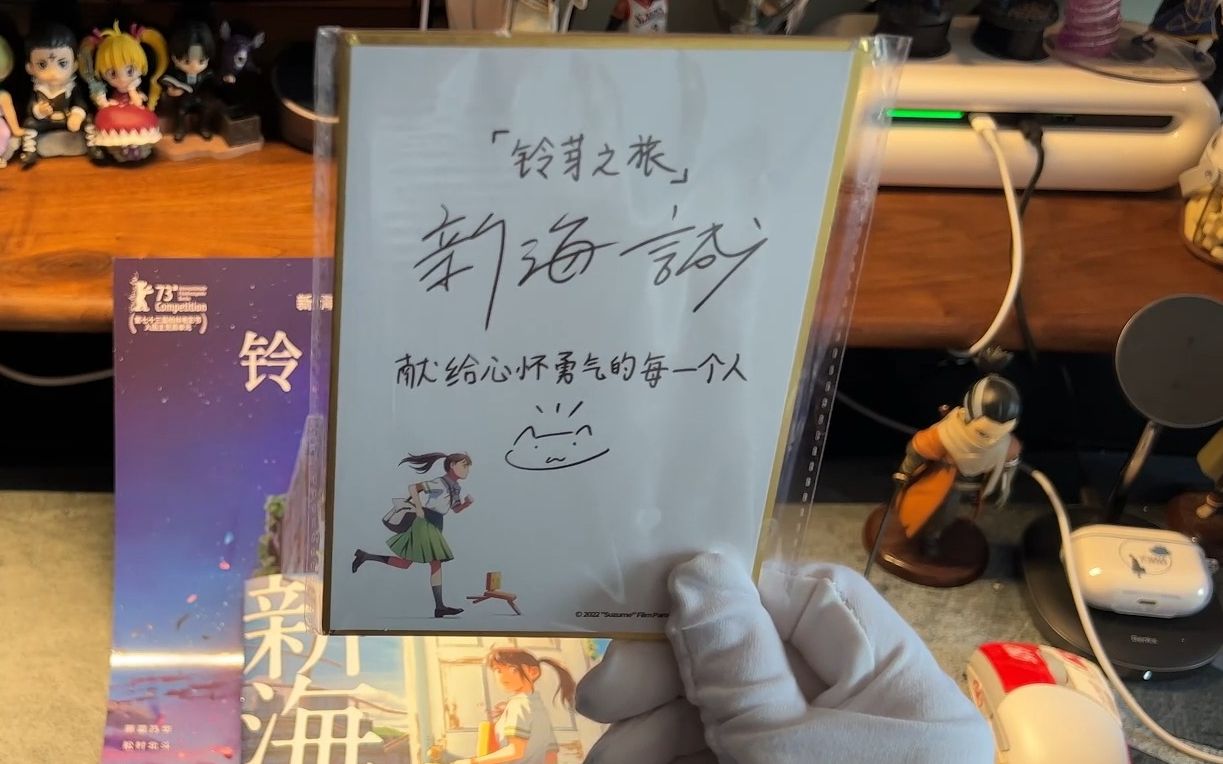 「铃芽之旅」
新海誠
献给心怀勇气的每一个人
© 2022 "Suzume" Film Par
73
Competition
新海
铃
新
海